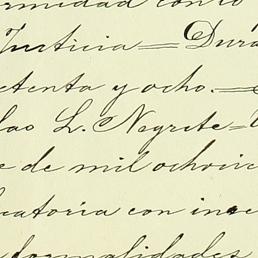 ermidad con lo
Justicia = Dura
etenta y ocho. =
lao L. Negrete =
e de mil ochocie
catoria con ins
formalidades